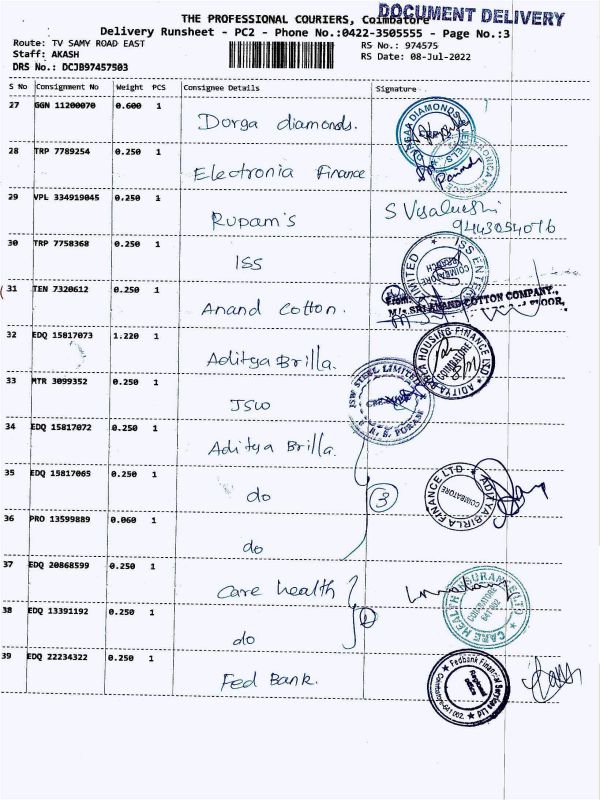 DOCUMENT DELIVERY
THE PROFESSIONAL COURIERS, Coimbatore
Delivery Runsheet - PC2 - Phone No.:0422-3505555 - Page No.:3
Route: TV SAMY ROAD EAST
RS No.: 974575
Staff: AKASH
RS Date: 08-Jul-2022
DRS No.: DCJB97457503
S No Consignment No Weight PCS Consignee Details Signature
27 GGN 11200070 0.600 1
Dorga diamonds.
28 TRP 7789254 0.250 1
Electronia Finance
29 VPL 334919045 0.250 1
Rupam's
S Visalakshi
9443054076
30 TRP 7758368 0.250 1
ISS
COIMBATORE BRANCH
31 TEN 7320612 0.250 1
Anand Cotton.
From:
M/s. SRI ANAND COTTON COMPANY.,
FLOOR,
32 EDQ 15817073 1.220 1
Aditya Brilla.
ADITYA BIRLA HOUSING FINANCE LTD.
COIMBATORE
33 MTR 3099352 0.250 1
JSW
JSW STEEL LIMITED
R. S. PURAM
34 EDQ 15817072 0.250 1
Aditya Brilla.
35 EDQ 15817065 0.250 1
do
3
ADITYA BIRLA FINANCE LTD
COIMBATORE
36 PRO 13599889 0.060 1
do
37 EDQ 20868599 0.250 1
Care health
CARE HEALTH INSURANCE (LTD)
COIMBATORE
641 002
38 EDQ 13391192 0.250 1
do
39 EDQ 22234322 0.250 1
Fed Bank.
Fedbank Financial Services Ltd
Coimbatore-641 002.